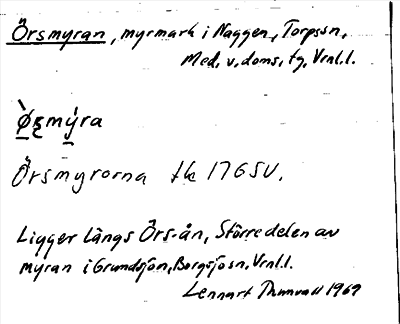 Örsmyran, myrmark i Naggen, Torpssn,
Med. v. doms. tg, Vrnl.l.
Örsmyrorna tk 17G SV.
Ligger längs Örs-ån, Större delen av
myran i Grundsjön, Borgsjösn, Vrnl.l.
Lennart Thunvall 1969